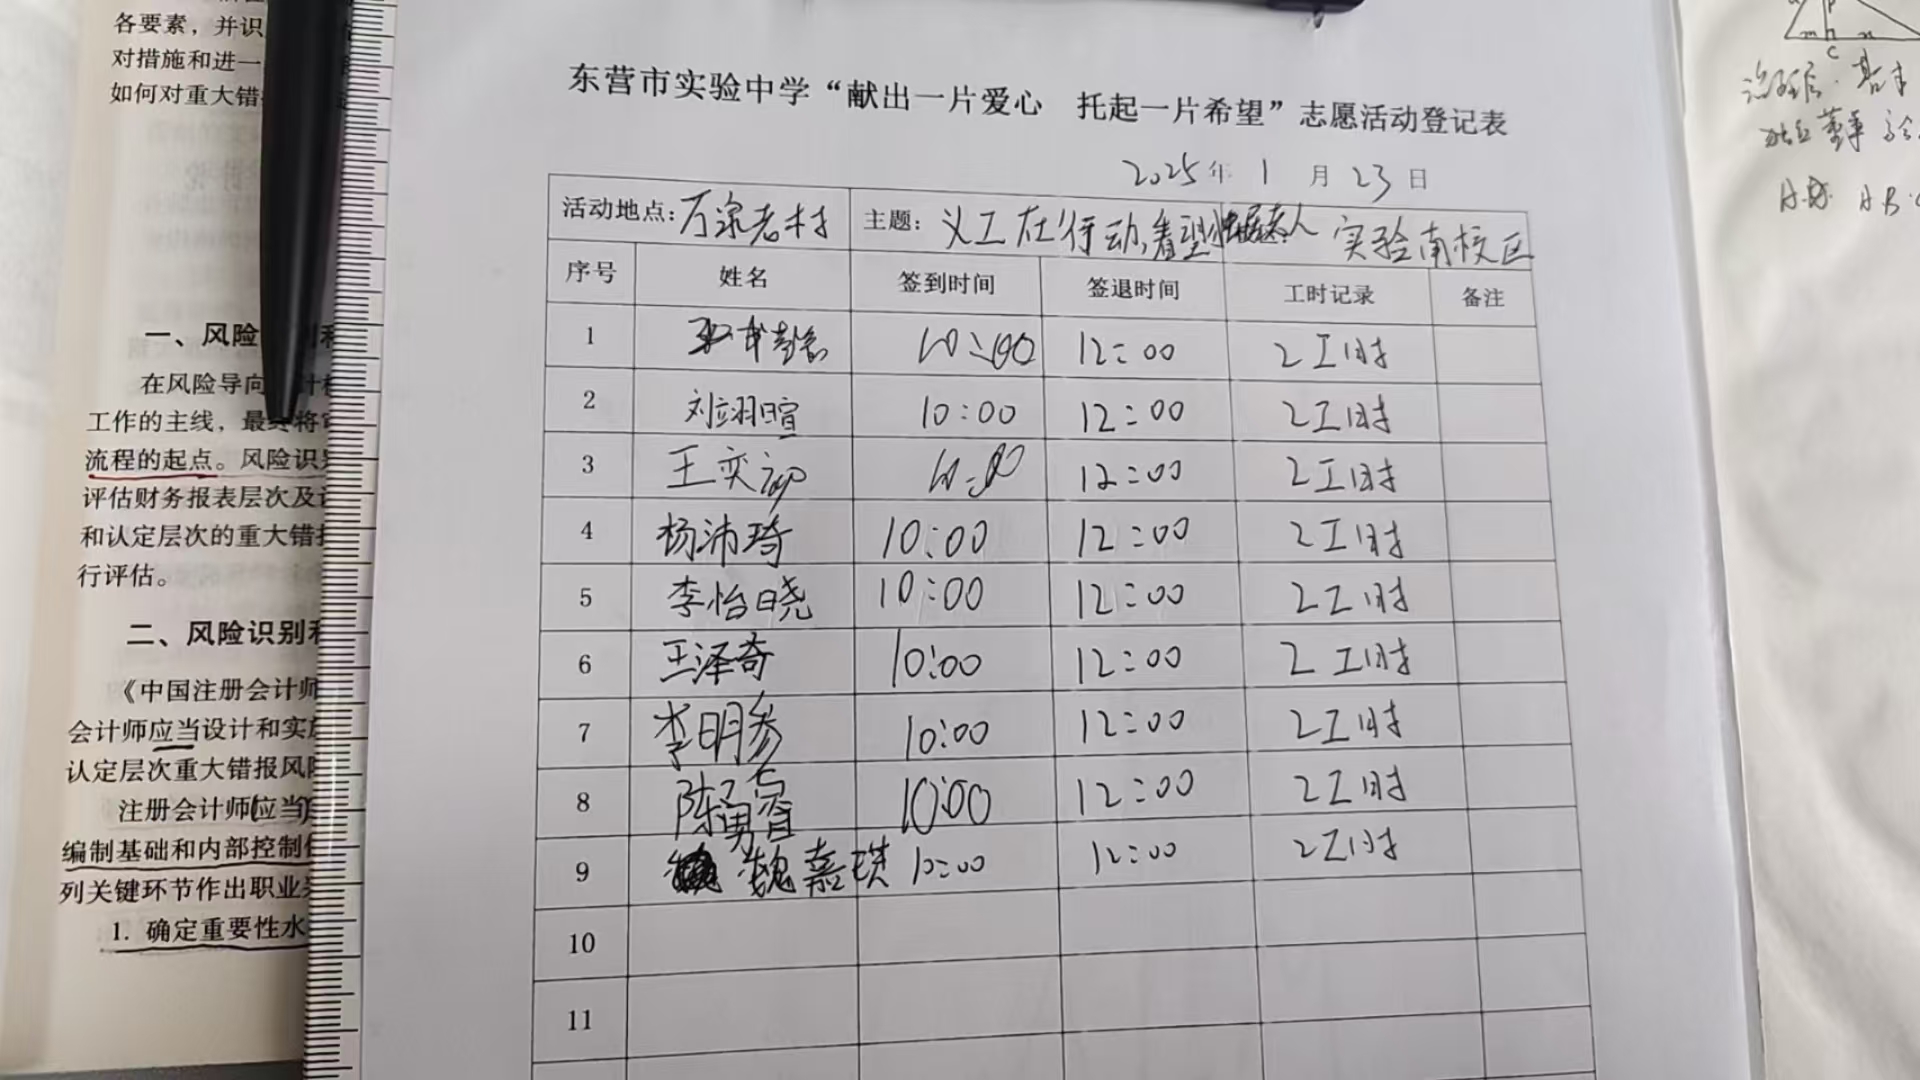 各要素，并识
对措施和进一
如何对重大错
一、风险
在风险导向
工作的主线，最终将
流程的起点。风险识
评估财务报表层次及
和认定层次的重大错
行评估。
二、风险识别和
《中国注册会计师
会计师应当设计和实施
认定层次重大错报风险
注册会计师(应当)
编制基础和内部控制
列关键环节作出职业
1. 确定重要性水
东营市实验中学“献出一片爱心 托起一片希望”志愿活动登记表
2025年 1 月 23 日
活动地点: 万泉老村 主题: 义工在行动,看望 老人 实验南校区
序号 姓名 签到时间 签退时间 工时记录 备注
1 10:00 12:00 2工时
2 刘翊暄 10:00 12:00 2工时
3 王奕 10:00 12:00 2工时
4 杨沛琦 10:00 12:00 2工时
5 李怡晓 10:00 12:00 2工时
6 王泽奇 10:00 12:00 2工时
7 李明参 10:00 12:00 2工时
8 陈勇睿 10:00 12:00 2工时
9 魏嘉琪 10:00 12:00 2工时
10
11
m n
C